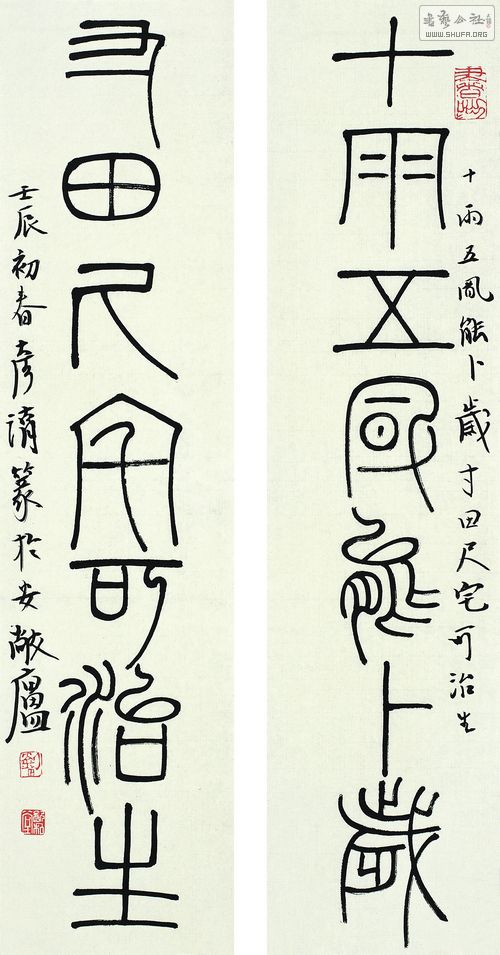 書藝公社
WWW.SHUFA.ORG
十雨五風能卜歲
十雨五風能卜歲寸田尺宅可治生
寸田尺宅可治生
壬辰初春彦湖篆於安敞廬